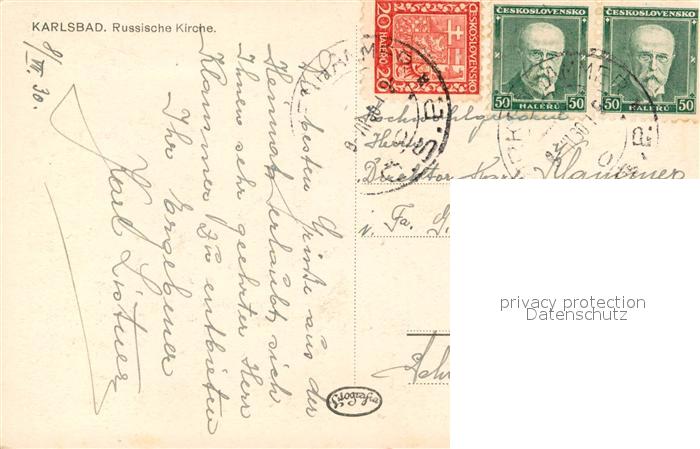 KARLSBAD. Russische Kirche.
8/VI. 30.
Die besten Grüße aus der
Heimat erlaubt sich
Ihnen sehr geehrter Herr
Klammer zu entbieten
Ihr Ergebener
Karl
20 HALÉŘŮ ČESKOSLOVENSKO 20
ČESKOSLOVENSKO
50 HALÉŘŮ 50
ČESKOSLOVENSKO
50 HALÉŘŮ 50
Hochwohlgeboren
Herrn
Direktor Karl Klammer
i. Fa. G.
privacy protection
Datenschutz